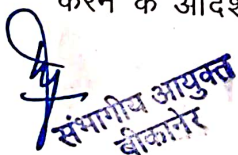 करने के आदेश
संभागीय आयुक्त
बीकानेर